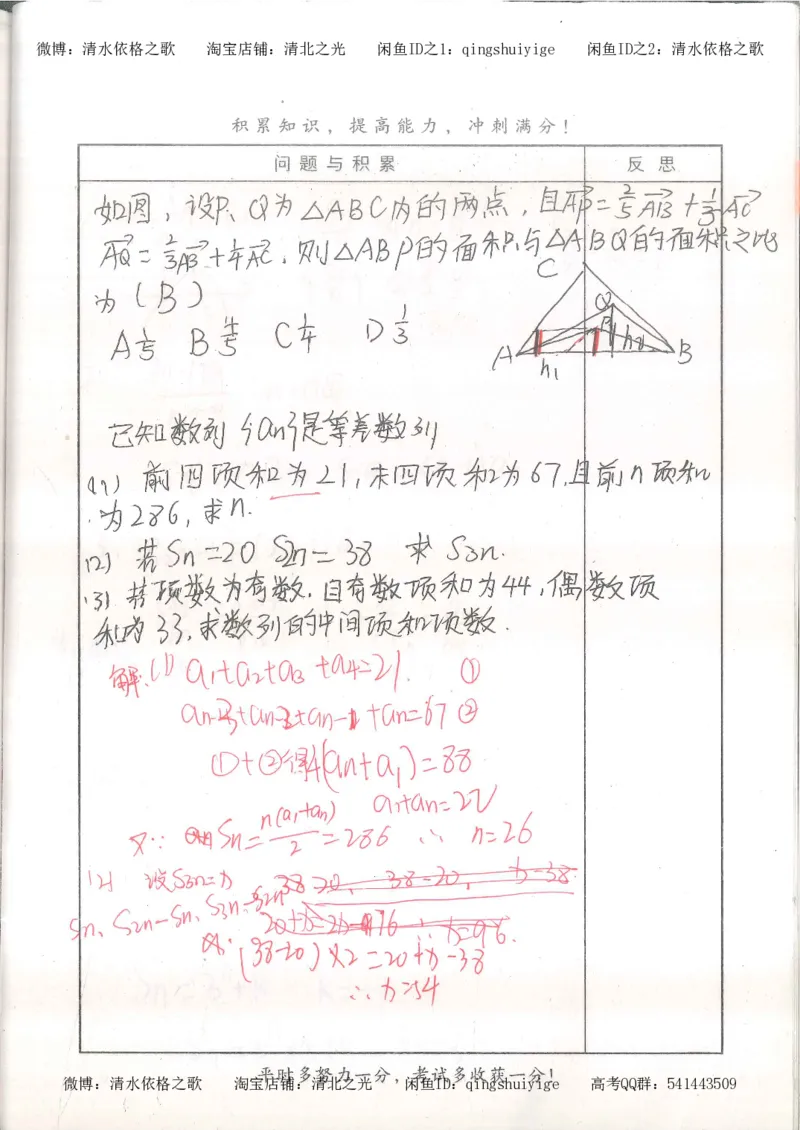 微博：清水依格之歌 淘宝店铺：清北之光 闲鱼ID之1：qingshuiyige 闲鱼ID之2：清水依格之歌
积累知识，提高能力，冲刺满分！
问题与积累 反思
如图，设P、Q为△ABC内的两点，且AP=2/5AB+1/3AC
AQ=2/3AB+1/4AC，则△ABP的面积与△ABQ的面积之比
为(B)
A 1/5 B 4/5 C 1/4 D 1/3
C
Q
P
A h1 h2 B
已知数列{an}是等差数列
(1) 前四项和为21,末四项和为67,且前n项和
为286,求n.
(2) 若Sn=20 S2n=38 求S3n.
(3) 若项数为奇数,且奇数项和为44,偶数项
和为33,求数列的中间项和项数.
解:(1) a1+a2+a3+a4=21. ①
an-3+an-2+an-1+an=67 ②
①+②得4(an+a1)=88
a1+an=22
又∵ Sn=n(a1+an)/2=286 ∴ n=26
(2) 设S3n=x 38-20, 38-20, x-38
Sn、S2n-Sn、S3n-S2n
20+x=2x-76 ∴x=96.
(38-20)×2=20+x-38
∴x=54
平时多努力一分，考试多收获一分！
微博：清水依格之歌 淘宝店铺：清北之光 闲鱼ID之1：qingshuiyige 高考QQ群：541443509